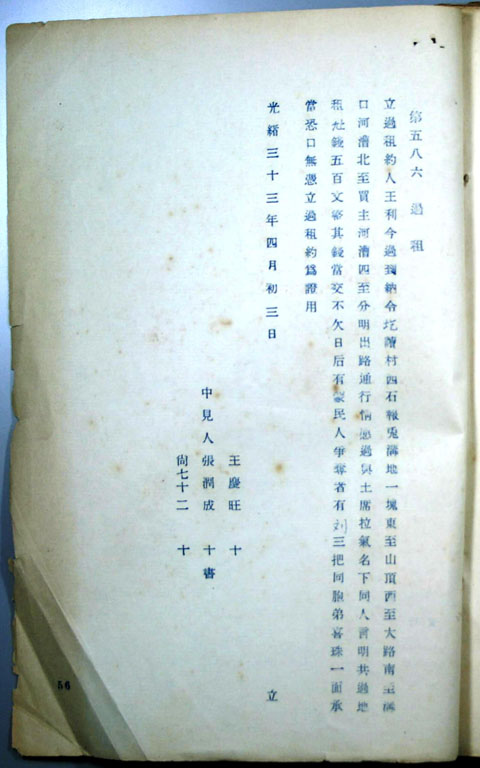 第五八六 過租
立過租約人王利今過到納令圪瀆村西石報兎溝地一塊東至山頂西至大路南至溝
口河漕北至買主河漕四至分明出路通行情愿過與土席拉氣名下同人言明共過地
租壯錢五百文寄其錢當交不欠日后有蒙民人爭奪者有刘三把同胞弟喜珠一面承
當恐口無憑立過租約爲證用
光緒三十三年四月初三日 立
王慶旺 十
中見人張潤成 十書
尙七十二 十
56